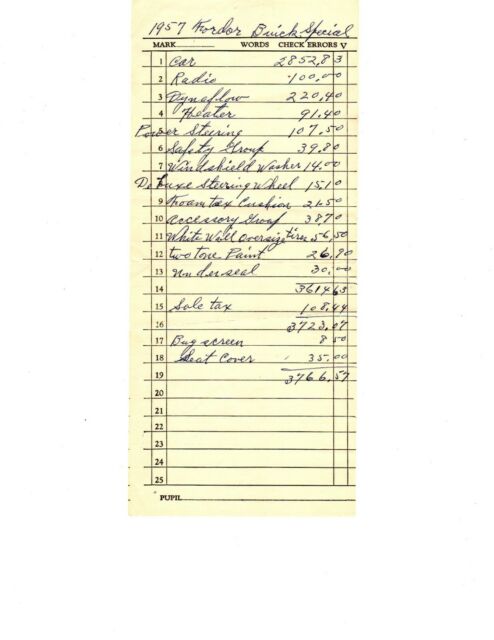 1957 Fordor Buick Special
MARK WORDS CHECK ERRORS √
1 Car 2852,83
2 Radio 100,00
3 Dynaflow 220,40
4 Heater 91.40
5 Power Steering 107.50
6 Safety Group 39.80
7 Windshield Washer 14.00
DeLuxe Steering Wheel 15.10
9 Foamtax Cushion 21.50
10 Accessory Group 38.70
11 White Wall Oversize tires 56,50
12 two tone Paint 26,90
13 Underseal 30.00
14 3614 63
15 Sale tax 108,44
16 3723,07
17 Bug screen 8 50
18 Seat Cover 35.00
19 3766,57
20
21
22
23
24
25
PUPIL